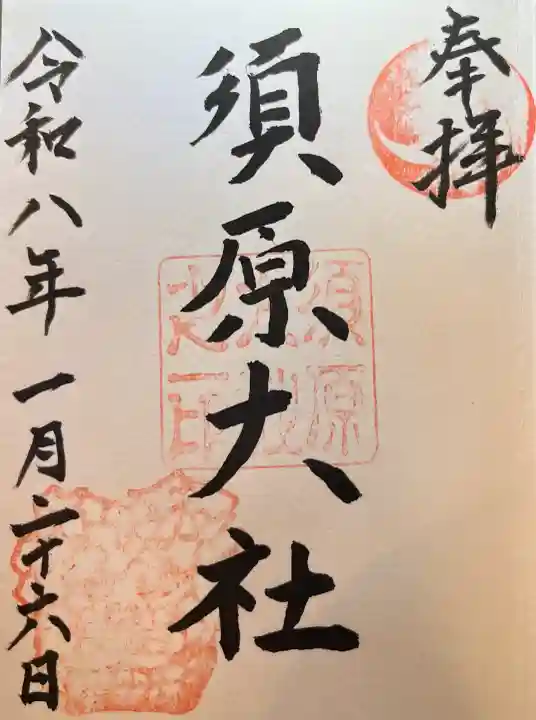 奉拝
須原大社
須原大社之印
令和八年一月二十六日